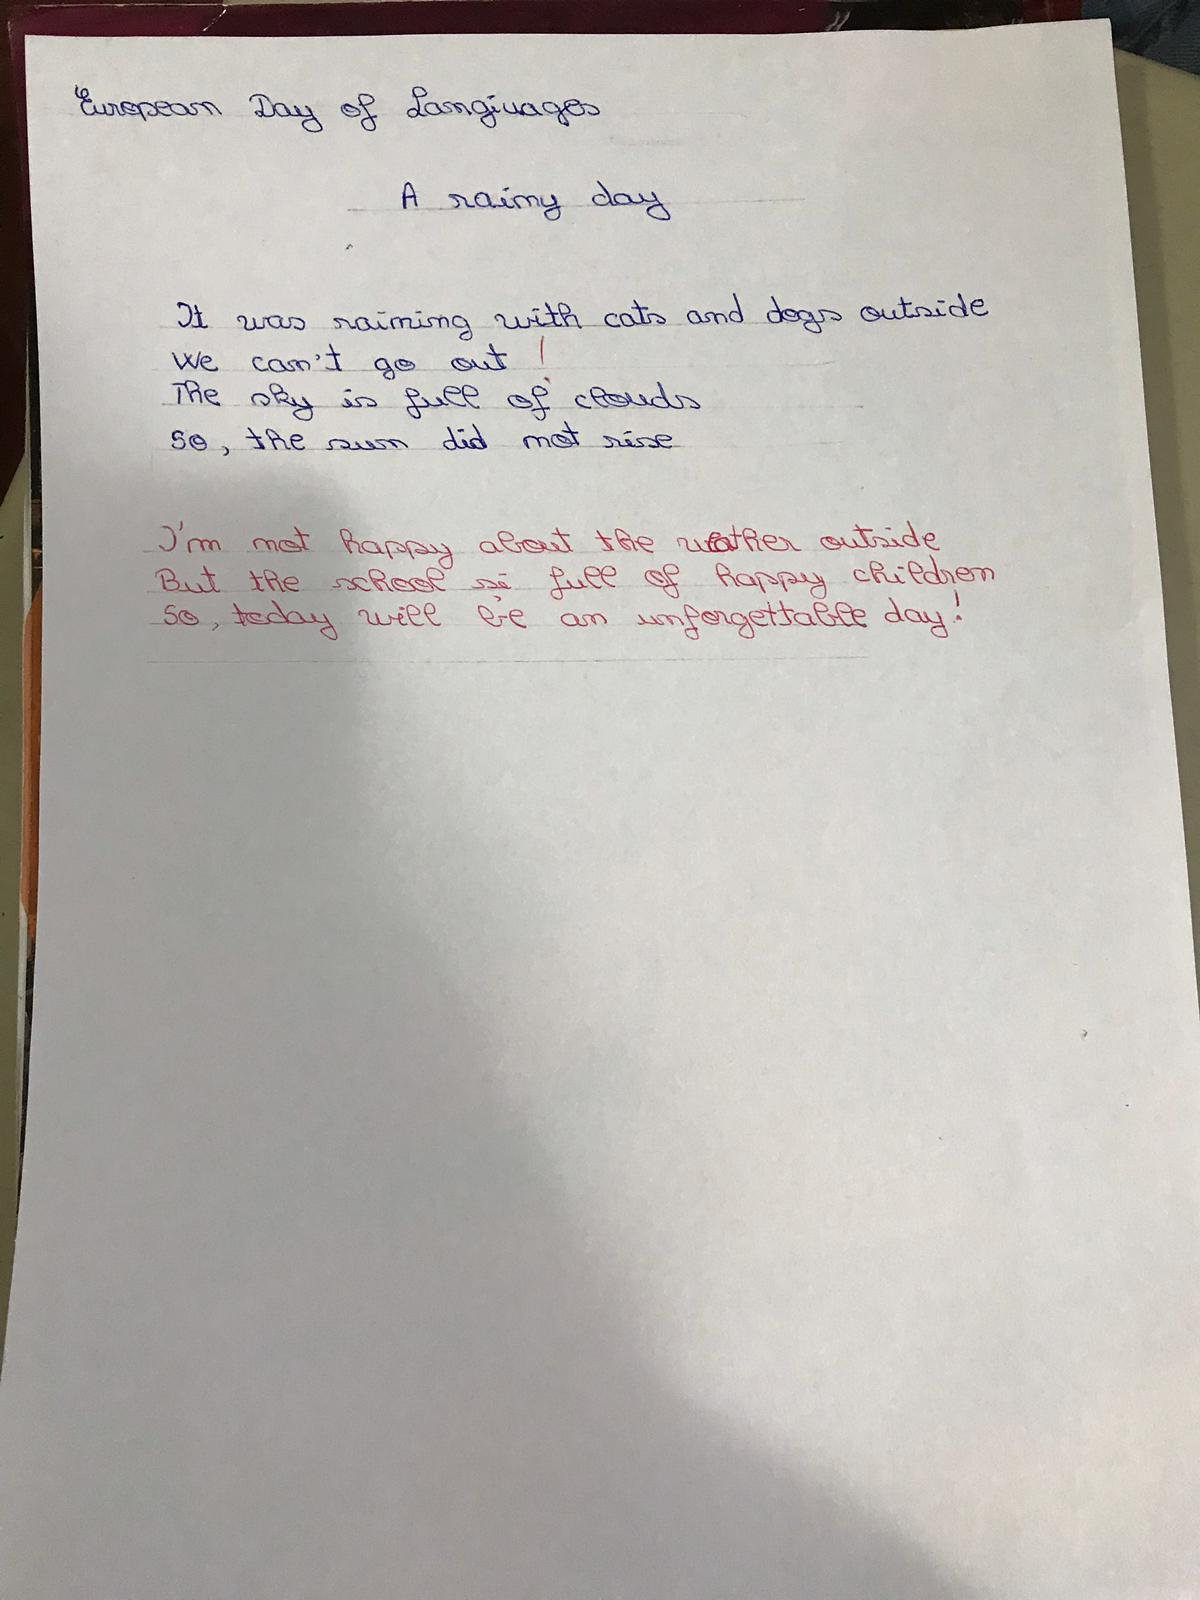 European Day of Languages
A rainy day
It was raining with cats and dogs outside
We can't go out !
The sky is full of clouds
So, the sun did not rise
I'm not happy about the weather outside
But the school si full of happy children
So, today will be an unforgettable day!